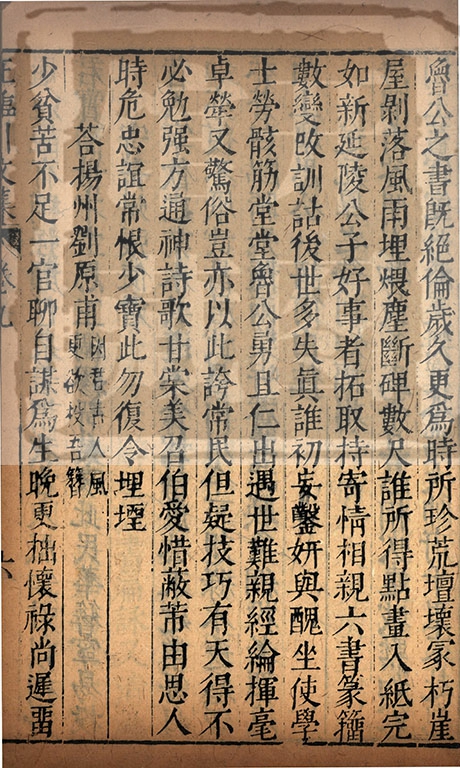 魯公之書旣絕倫歲久更爲時所珍荒壇壞冢朽崖
屋剝落風雨埋煨塵斷碑數尺誰所得點畫入紙完
如新延陵公子好事者拓取持寄情相親六書篆籒
數變改訓詁後世多失眞誰初妄鑿妍與醜坐使學
士勞骸筋堂堂魯公勇且仁出遇世難親經綸揮毫
卓犖又驚俗豈亦以此誇常民但疑技巧有天得不
必勉强方通神詩歌甘棠美召伯愛惜蔽芾由思人
時危忠誼常恨少寶此勿復令埋堙
荅揚州劉原甫
少貧苦不足一官聊自謀爲生晚更拙懷祿尚遲畱
王臨川文集 卷九 六